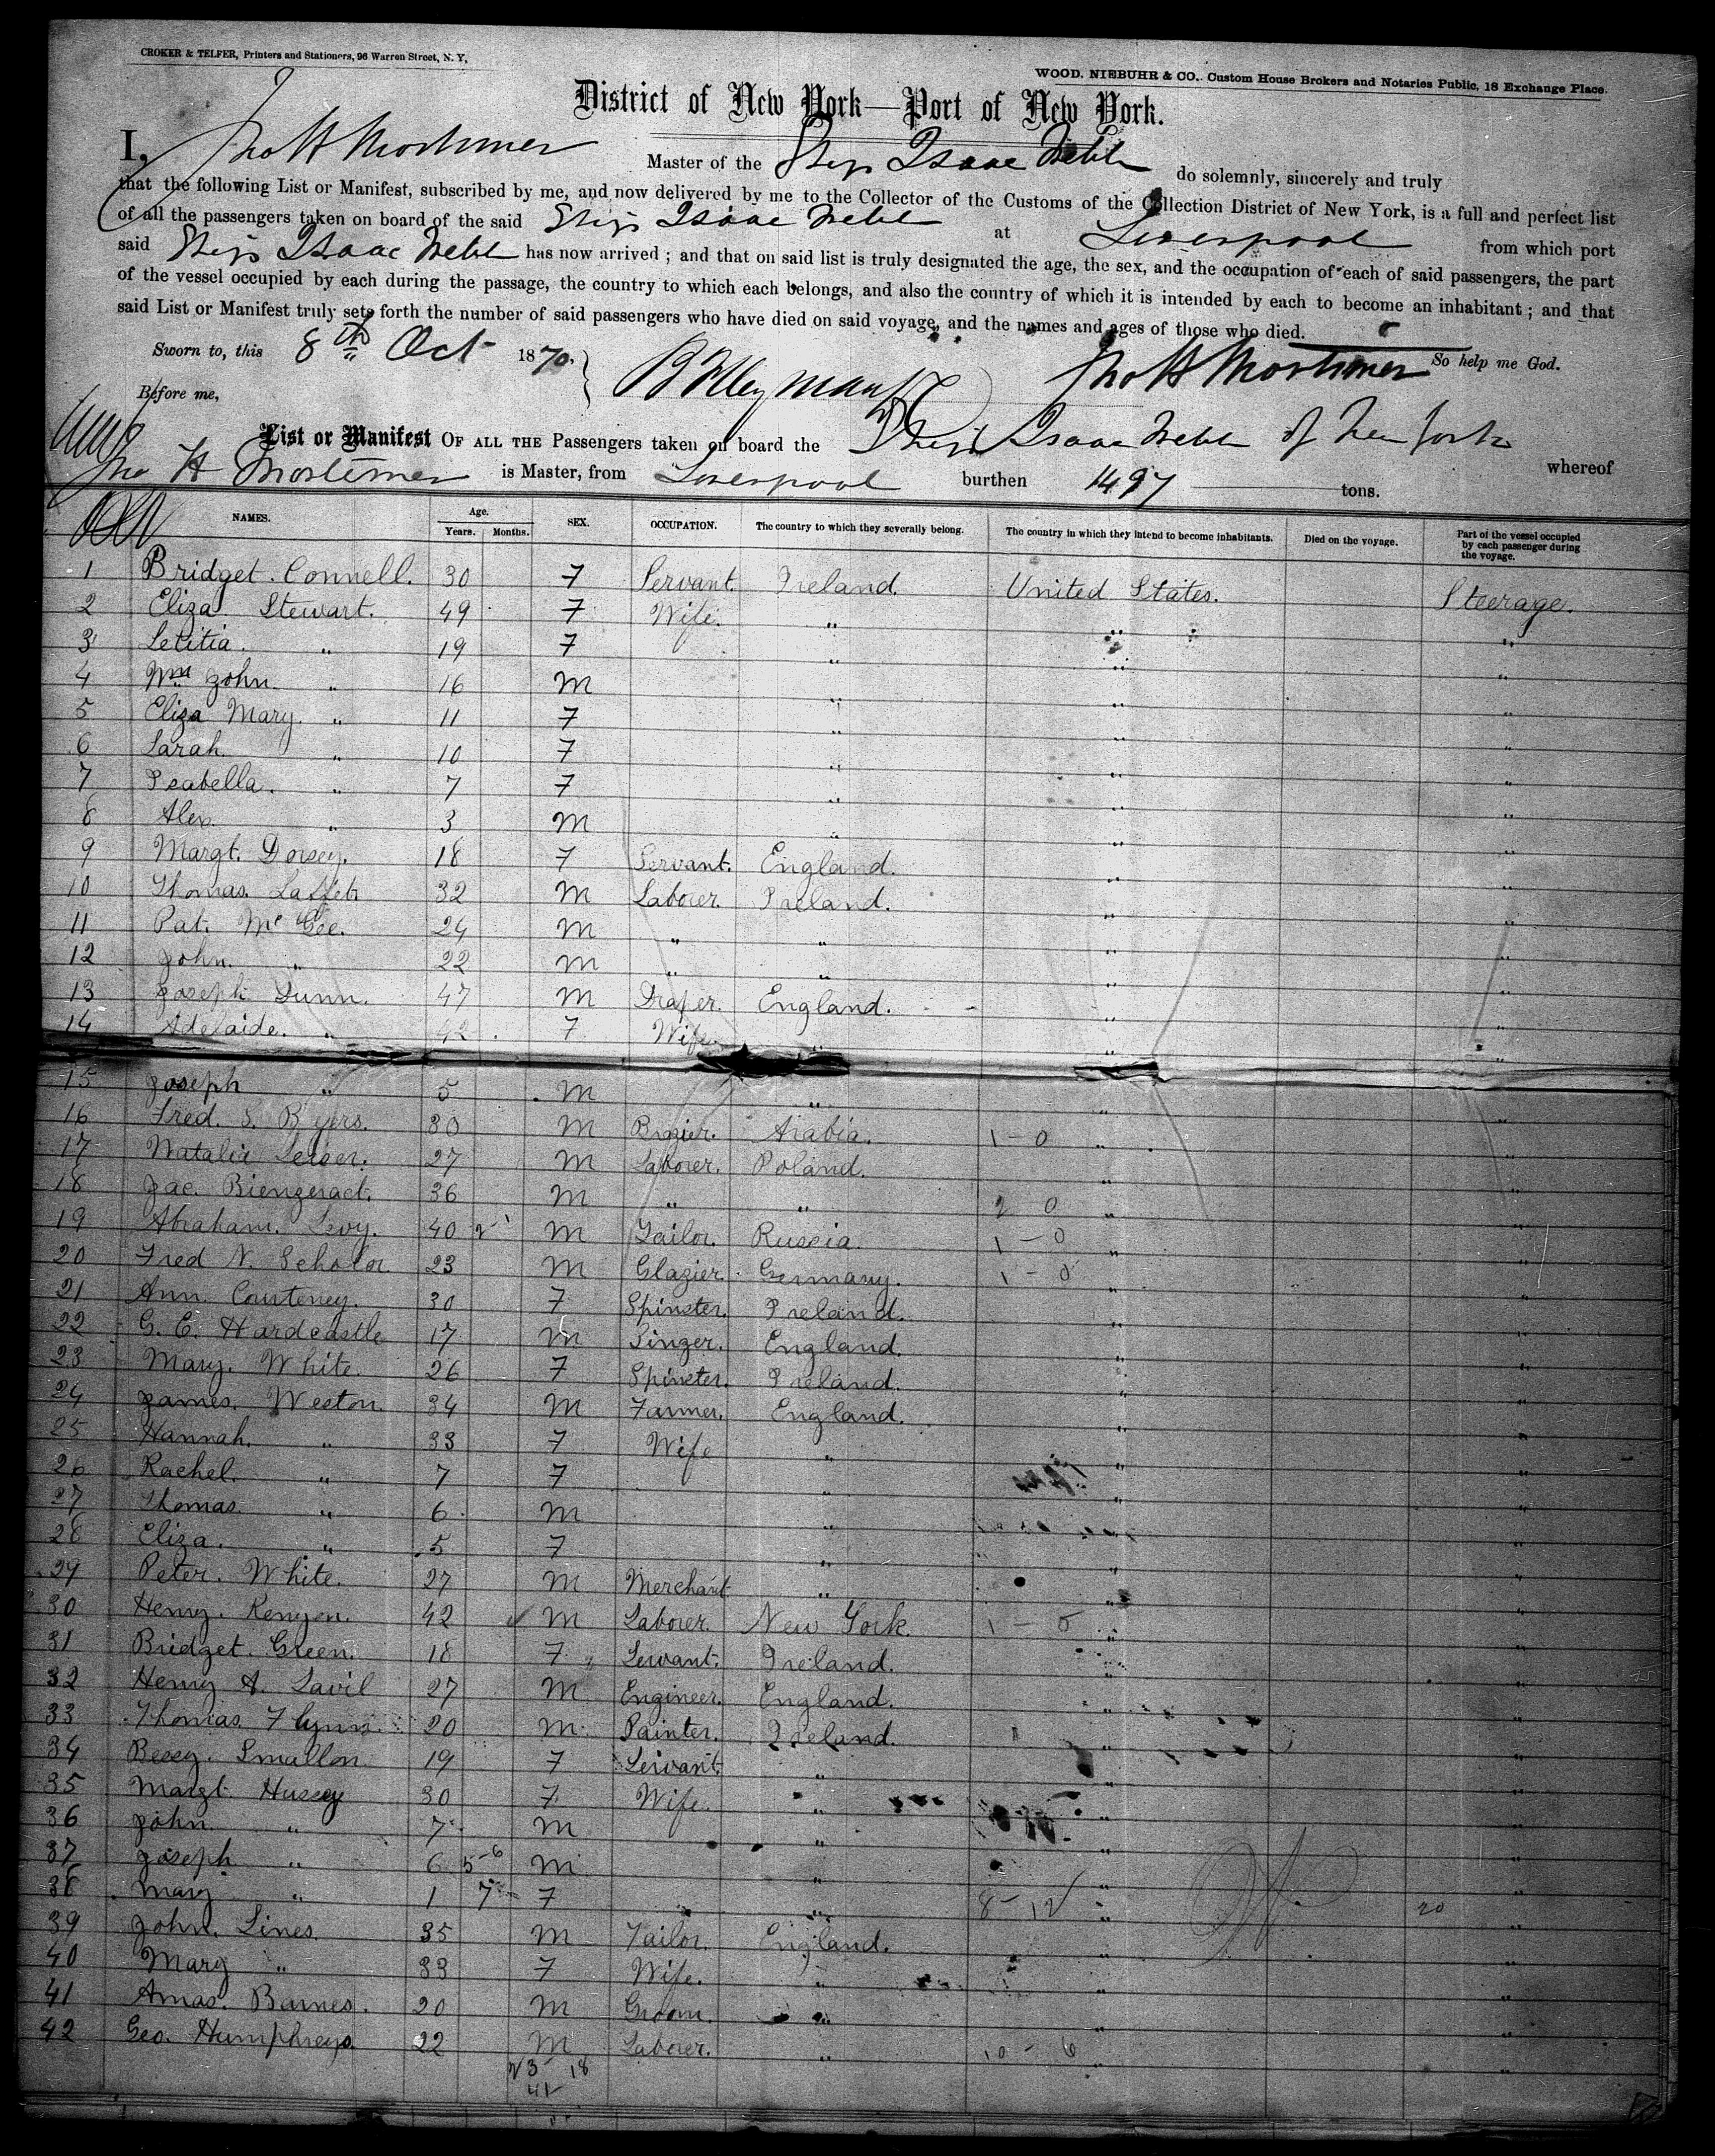 CROKER & TELFER, Printers and Stationers, 96 Warren Street, N. Y,
WOOD, NIEBUHR & CO., Custom House Brokers and Notaries Public, 18 Exchange Place.
District of New York—Port of New York.
I, Jno H Mortimer Master of the Ship Isaac Webb do solemnly, sincerely and truly
that the following List or Manifest, subscribed by me, and now delivered by me to the Collector of the Customs of the Collection District of New York, is a full and perfect list
of all the passengers taken on board of the said Ship Isaac Webb at Liverpool from which port
said Ship Isaac Webb has now arrived; and that on said list is truly designated the age, the sex, and the occupation of each of said passengers, the part
of the vessel occupied by each during the passage, the country to which each belongs, and also the country of which it is intended by each to become an inhabitant; and that
said List or Manifest truly sets forth the number of said passengers who have died on said voyage, and the names and ages of those who died.
Sworn to, this 8th Oct 1870. Jno H Mortimer So help me God.
Before me,
List or Manifest OF ALL THE Passengers taken on board the Ship Isaac Webb of New York whereof
Jno H Mortimer is Master, from Liverpool burthen 1497 tons.
NAMES. Age. Years. Months. SEX. OCCUPATION. The country to which they severally belong. The country in which they intend to become inhabitants. Died on the voyage. Part of the vessel occupied by each passenger during the voyage.
1 Bridget. Connell. 30 F Servant Ireland. United States. Steerage.
2 Eliza. Stewart. 49 F Wife. " " "
3 Letitia. " 19 F " " "
4 Wm John. " 16 M " " "
5 Eliza Mary. " 11 F " " "
6 Sarah. " 10 F " " "
7 Isabella. " 7 F " " "
8 Alex. " 3 M " " "
9 Margt. Dorsey. 18 F Servant. England. " "
10 Thomas. 32 M Laborer Ireland. " "
11 Pat. McGee. 24 M " " " "
12 John. " 22 M " " " "
13 Joseph Dunn. 47 M Draper. England. " "
14 Adelaide. " 42 F Wife. " " "
15 Joseph " 5 M " " "
16 Fred. S. Byers. 30 M Arabia. 1-0 " "
17 Natalia Leiser. 27 M Laborer. Poland. " "
18 Jac. 36 M " " 2 0 " "
19 Abraham. Levy. 40 M Tailor. Russia. 1-0 " "
20 Fred N. 23 M Glazier. Germany. 1-0 " "
21 Ann Courteney. 30 F Spinster. Ireland. " "
22 G. E. Hardcastle 17 M Singer. England. " "
23 Mary. White. 26 F Spinster. Ireland. " "
24 James. Weston. 34 M Farmer. England. " "
25 Hannah. " 33 F Wife " " "
26 Rachel. " 7 F " " "
27 Thomas " 6 M " " "
28 Eliza. " 5 F " " "
29 Peter. White. 27 M Merchant " " "
30 Henry. Kenyon. 42 M Laborer. New York. 1-0 " "
31 Bridget. Green. 18 F Servant. Ireland. " "
32 Henry A. Lavil 27 M Engineer. England. " "
33 Thomas. Flynn. 20 M Painter. Ireland. " "
34 Bessy. Smallon 19 F Servant. " " "
35 Margt. Hussey 30 F Wife. " " "
36 John. " 7 M " " "
37 Joseph " 6 5-6 M " " "
38 Mary " 1 7 F " 8-12 " 20 "
39 John. Lines. 35 M Tailor. England. " "
40 Mary " 33 F Wife. " " "
41 Amas. Barnes. 20 M Groom. " " "
42 Geo. Humphreys. 22 M Laborer. " 10-6 " "
23 18
41